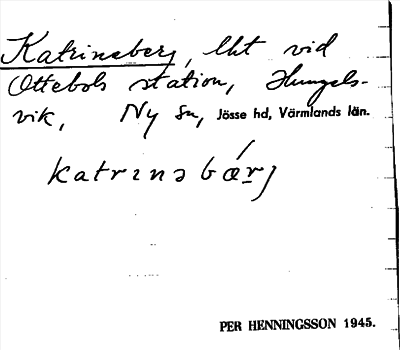 Katrineberg, lht vid
Ottebols station, Hungels-
vik, Ny sn, Jösse hd, Värmlands län.
katrınsbǽrj
PER HENNINGSSON 1945.